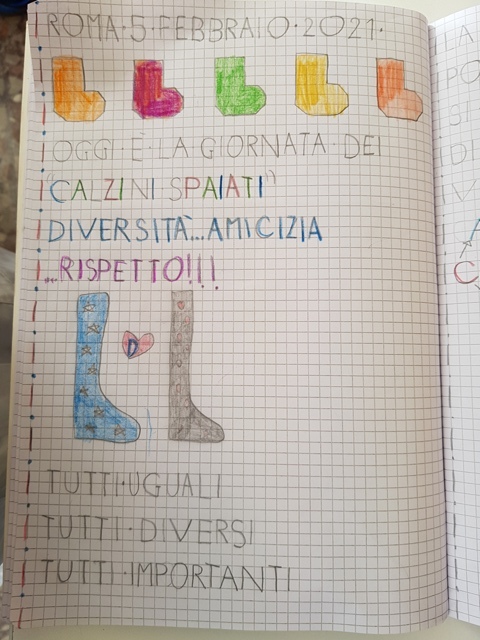 ROMA·5·FEBBRAIO·2021·
OGGI·È·LA GIORNATA·DEI
"CALZINI SPAIATI"
DIVERSITÀ...AMICIZIA
...RISPETTO!!!
D
TUTTI·UGUALI
TUTTI·DIVERSI
TUTTI·IMPORTANTI